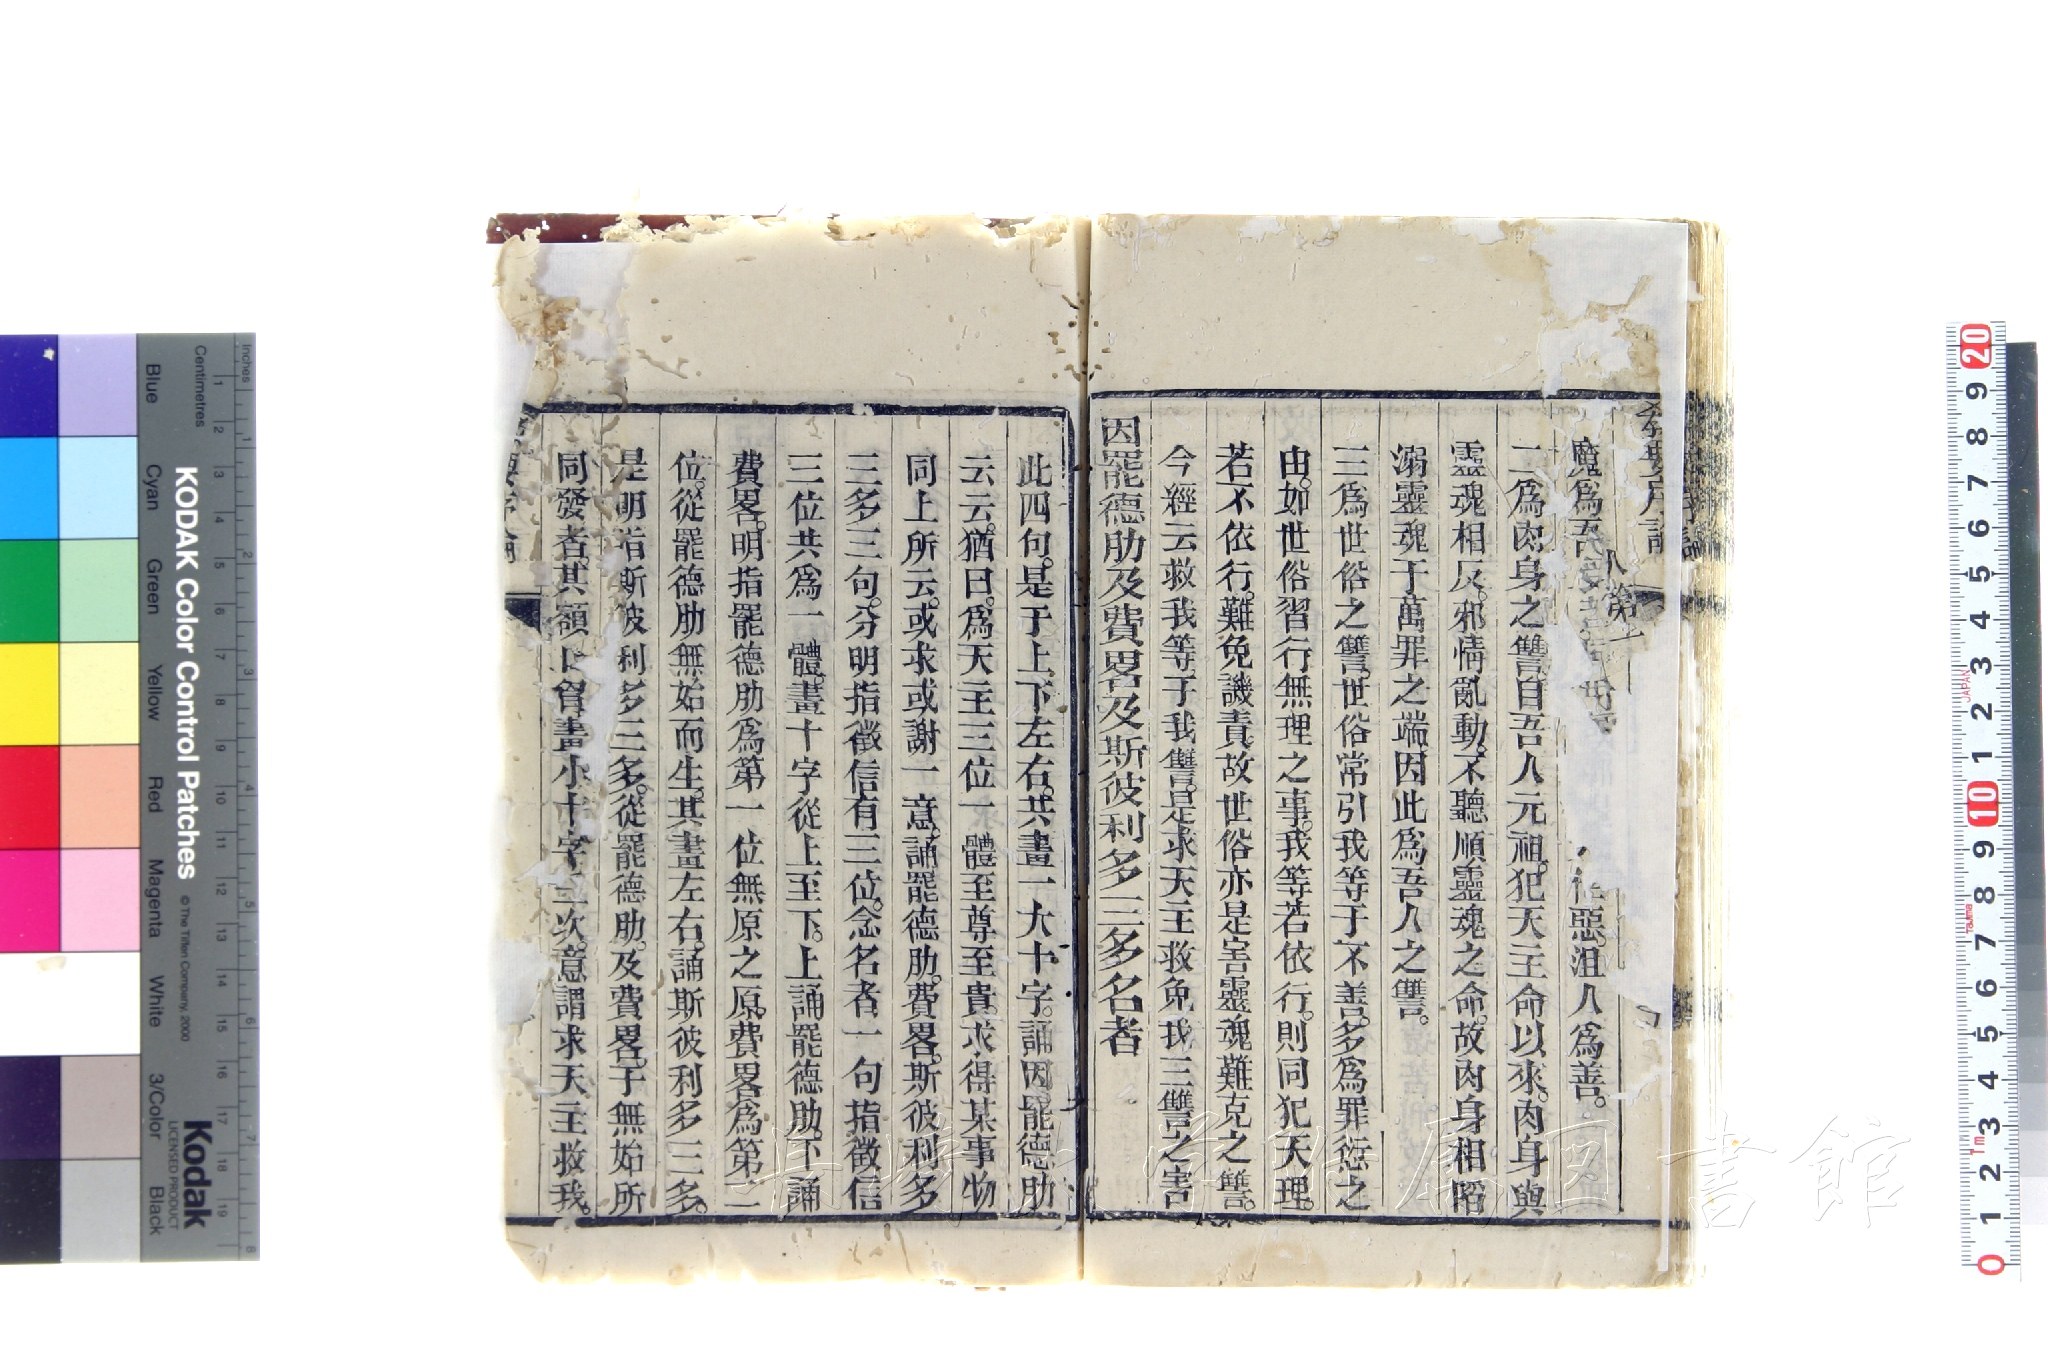 教要序論
八
第一
魔爲吾 惡沮人爲善。
二爲肉身之讐。自吾人元祖。犯天主命以來。肉身與
靈魂相反。邪情亂動。不聽順靈魂之命。故肉身相陷
溺靈魂于萬罪之端。因此爲吾人之讐。
三爲世俗之讐。世俗常引我等于不善。多爲罪愆之
由。如世俗習行無理之事。我等若依行。則同犯天理。
若不依行。難免譏責。故世俗亦是害靈魂難克之讐。
今經云救我等于我讐。是求天主救免我三讐之害
因罷德肋及費畧及斯彼利多三多名者
此四句。是于上下左右。共畫一大十字。誦因罷德肋
云云。猶曰。爲天主三位一體至尊至貴。求得某事物
同上所云。或求或謝一意。誦罷德肋。費畧。斯彼利多
三多三句。分明指徵信有三位。念名者一句指徵信
三位共爲一體。畫十字從上至下。上誦罷德肋。下誦
費畧。明指罷德肋爲第一位無原之原。費畧爲第二
位。從罷德肋無始而生。其畫左右。誦斯彼利多三多。
是明指斯彼利多三多。從罷德肋。及費畧。于無始所
同發者。其額口胷畫小十字三次。意謂求天主救我。
KODAK Color Control Patches
© The Tiffen Company, 2000
Kodak
LICENSED PRODUCT
Inches
Centimetres
Blue
Cyan
Green
Yellow
Red
Magenta
White
3/Color
Black
JAPAN
Tajima
長崎大学附属図書館